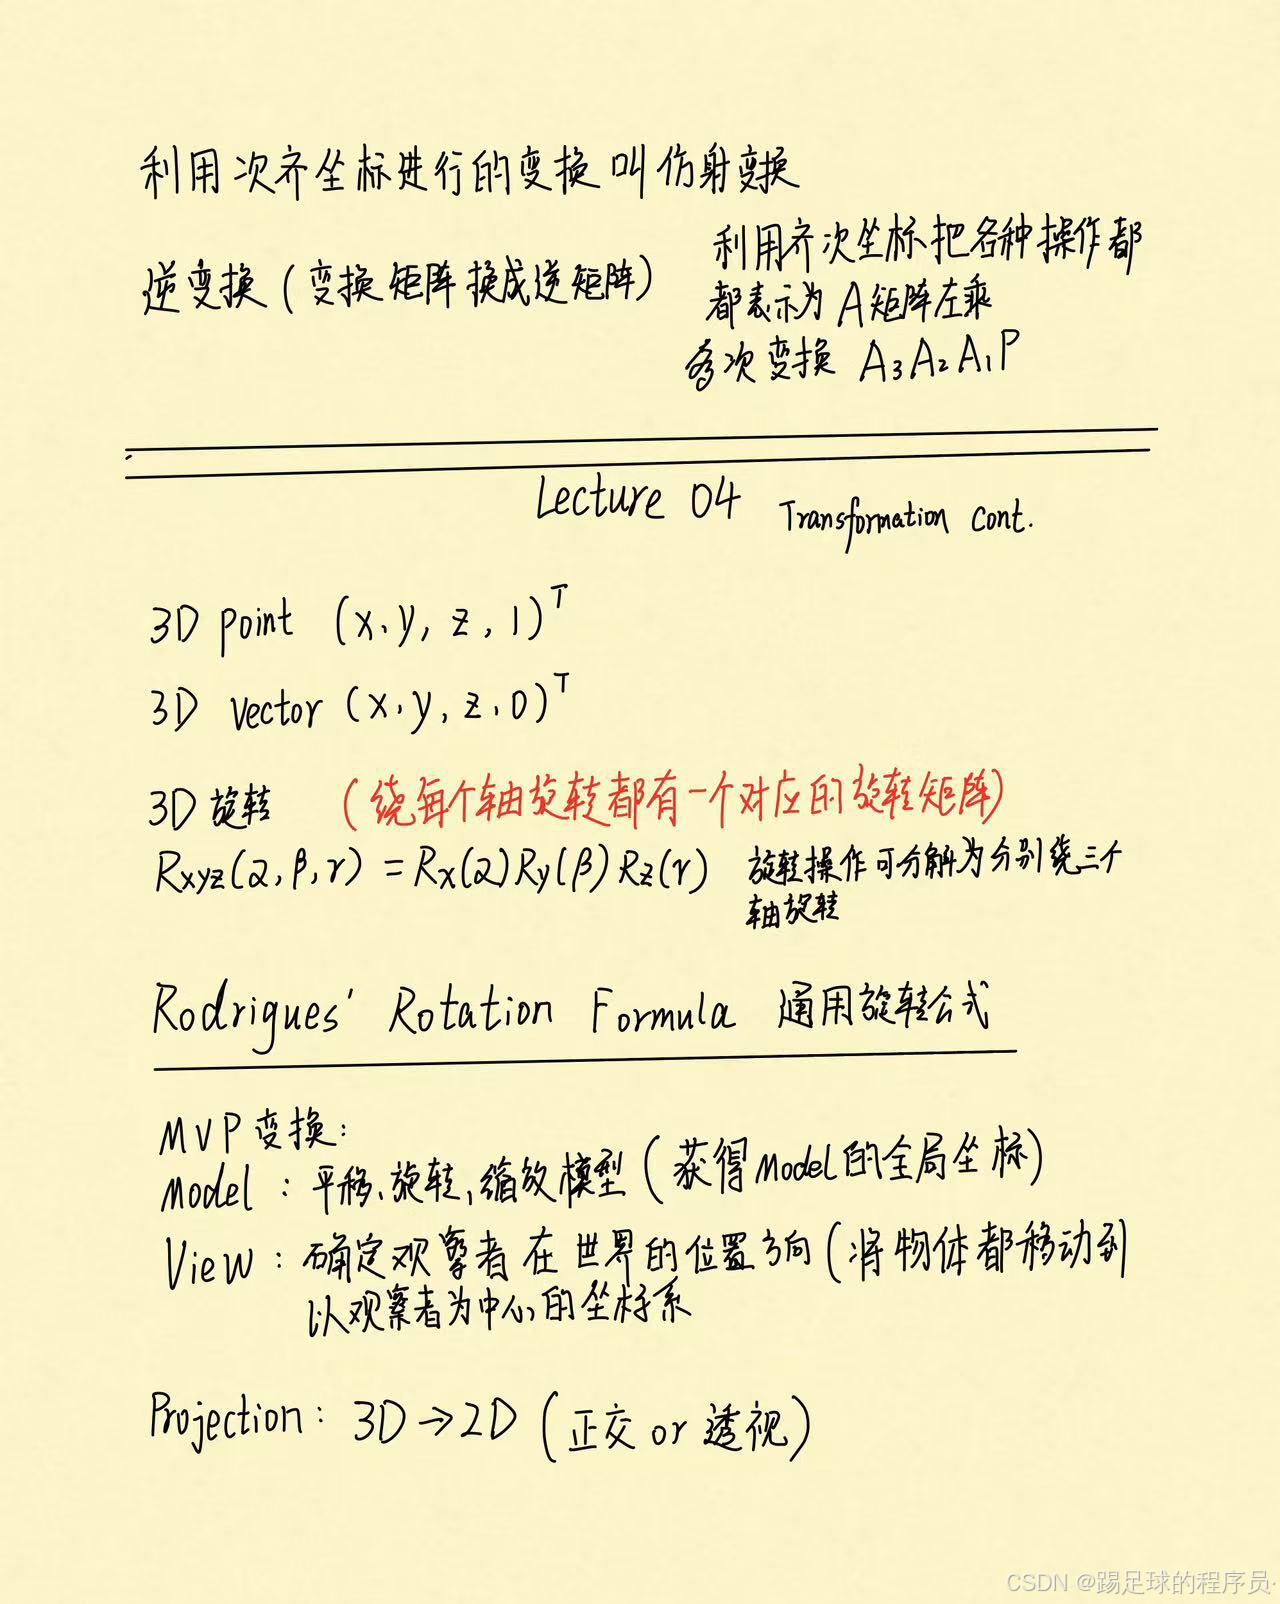 利用次齐坐标进行的变换叫仿射变换
逆变换(变换矩阵换成逆矩阵)
利用齐次坐标把各种操作都
都表示为A矩阵左乘
多次变换 A₃A₂A₁P
Lecture 04 Transformation cont.
3D point (x, y, z, 1)ᵀ
3D vector (x, y, z, 0)ᵀ
3D 旋转 (绕每个轴旋转都有一个对应的旋转矩阵)
Rxyz(α, β, γ) = Rx(α) Ry(β) Rz(γ) 旋转操作可分解为分别绕三个
轴旋转
Rodrigues' Rotation Formula 通用旋转公式
MVP变换:
Model: 平移、旋转,缩放模型(获得Model的全局坐标)
View: 确定观察者在世界的位置方向(将物体都移动到
以观察者为中心的坐标系
Projection: 3D→2D (正交 or 透视)
CSDN @踢足球的程序员